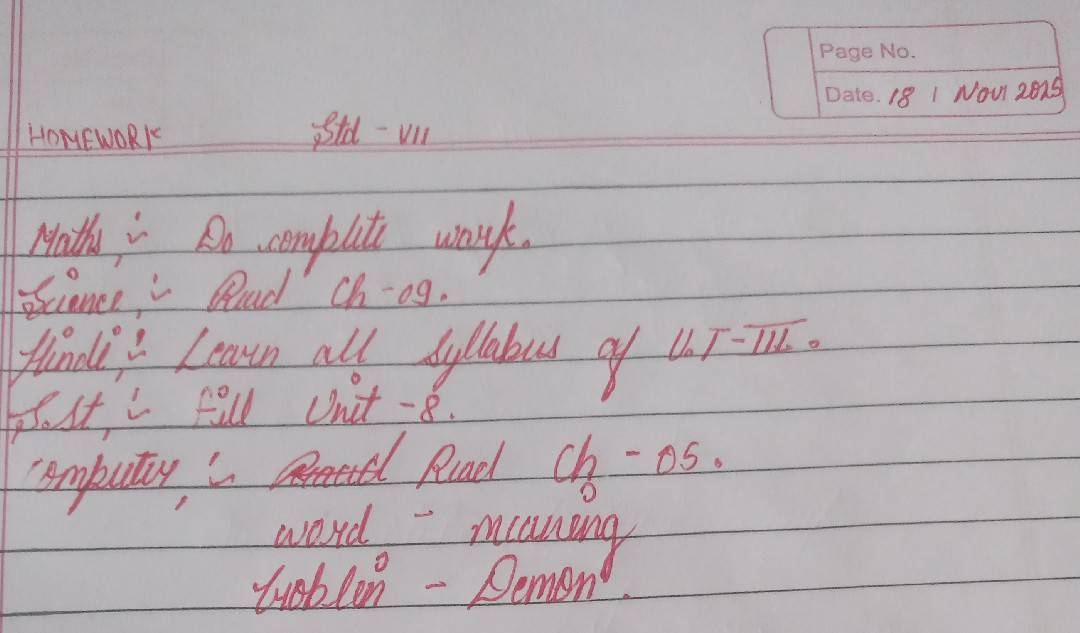 Page No.
Date. 18 / Nov/ 2025
HOMEWORK Std - VII
Maths :- Do complete work.
Science :- Read Ch-09.
Hindi :- Learn all syllabus of U.T-III.
S.St :- fill Unit-8.
Computer :- Read Ch-05.
word - meaning
Goblin - Demon.